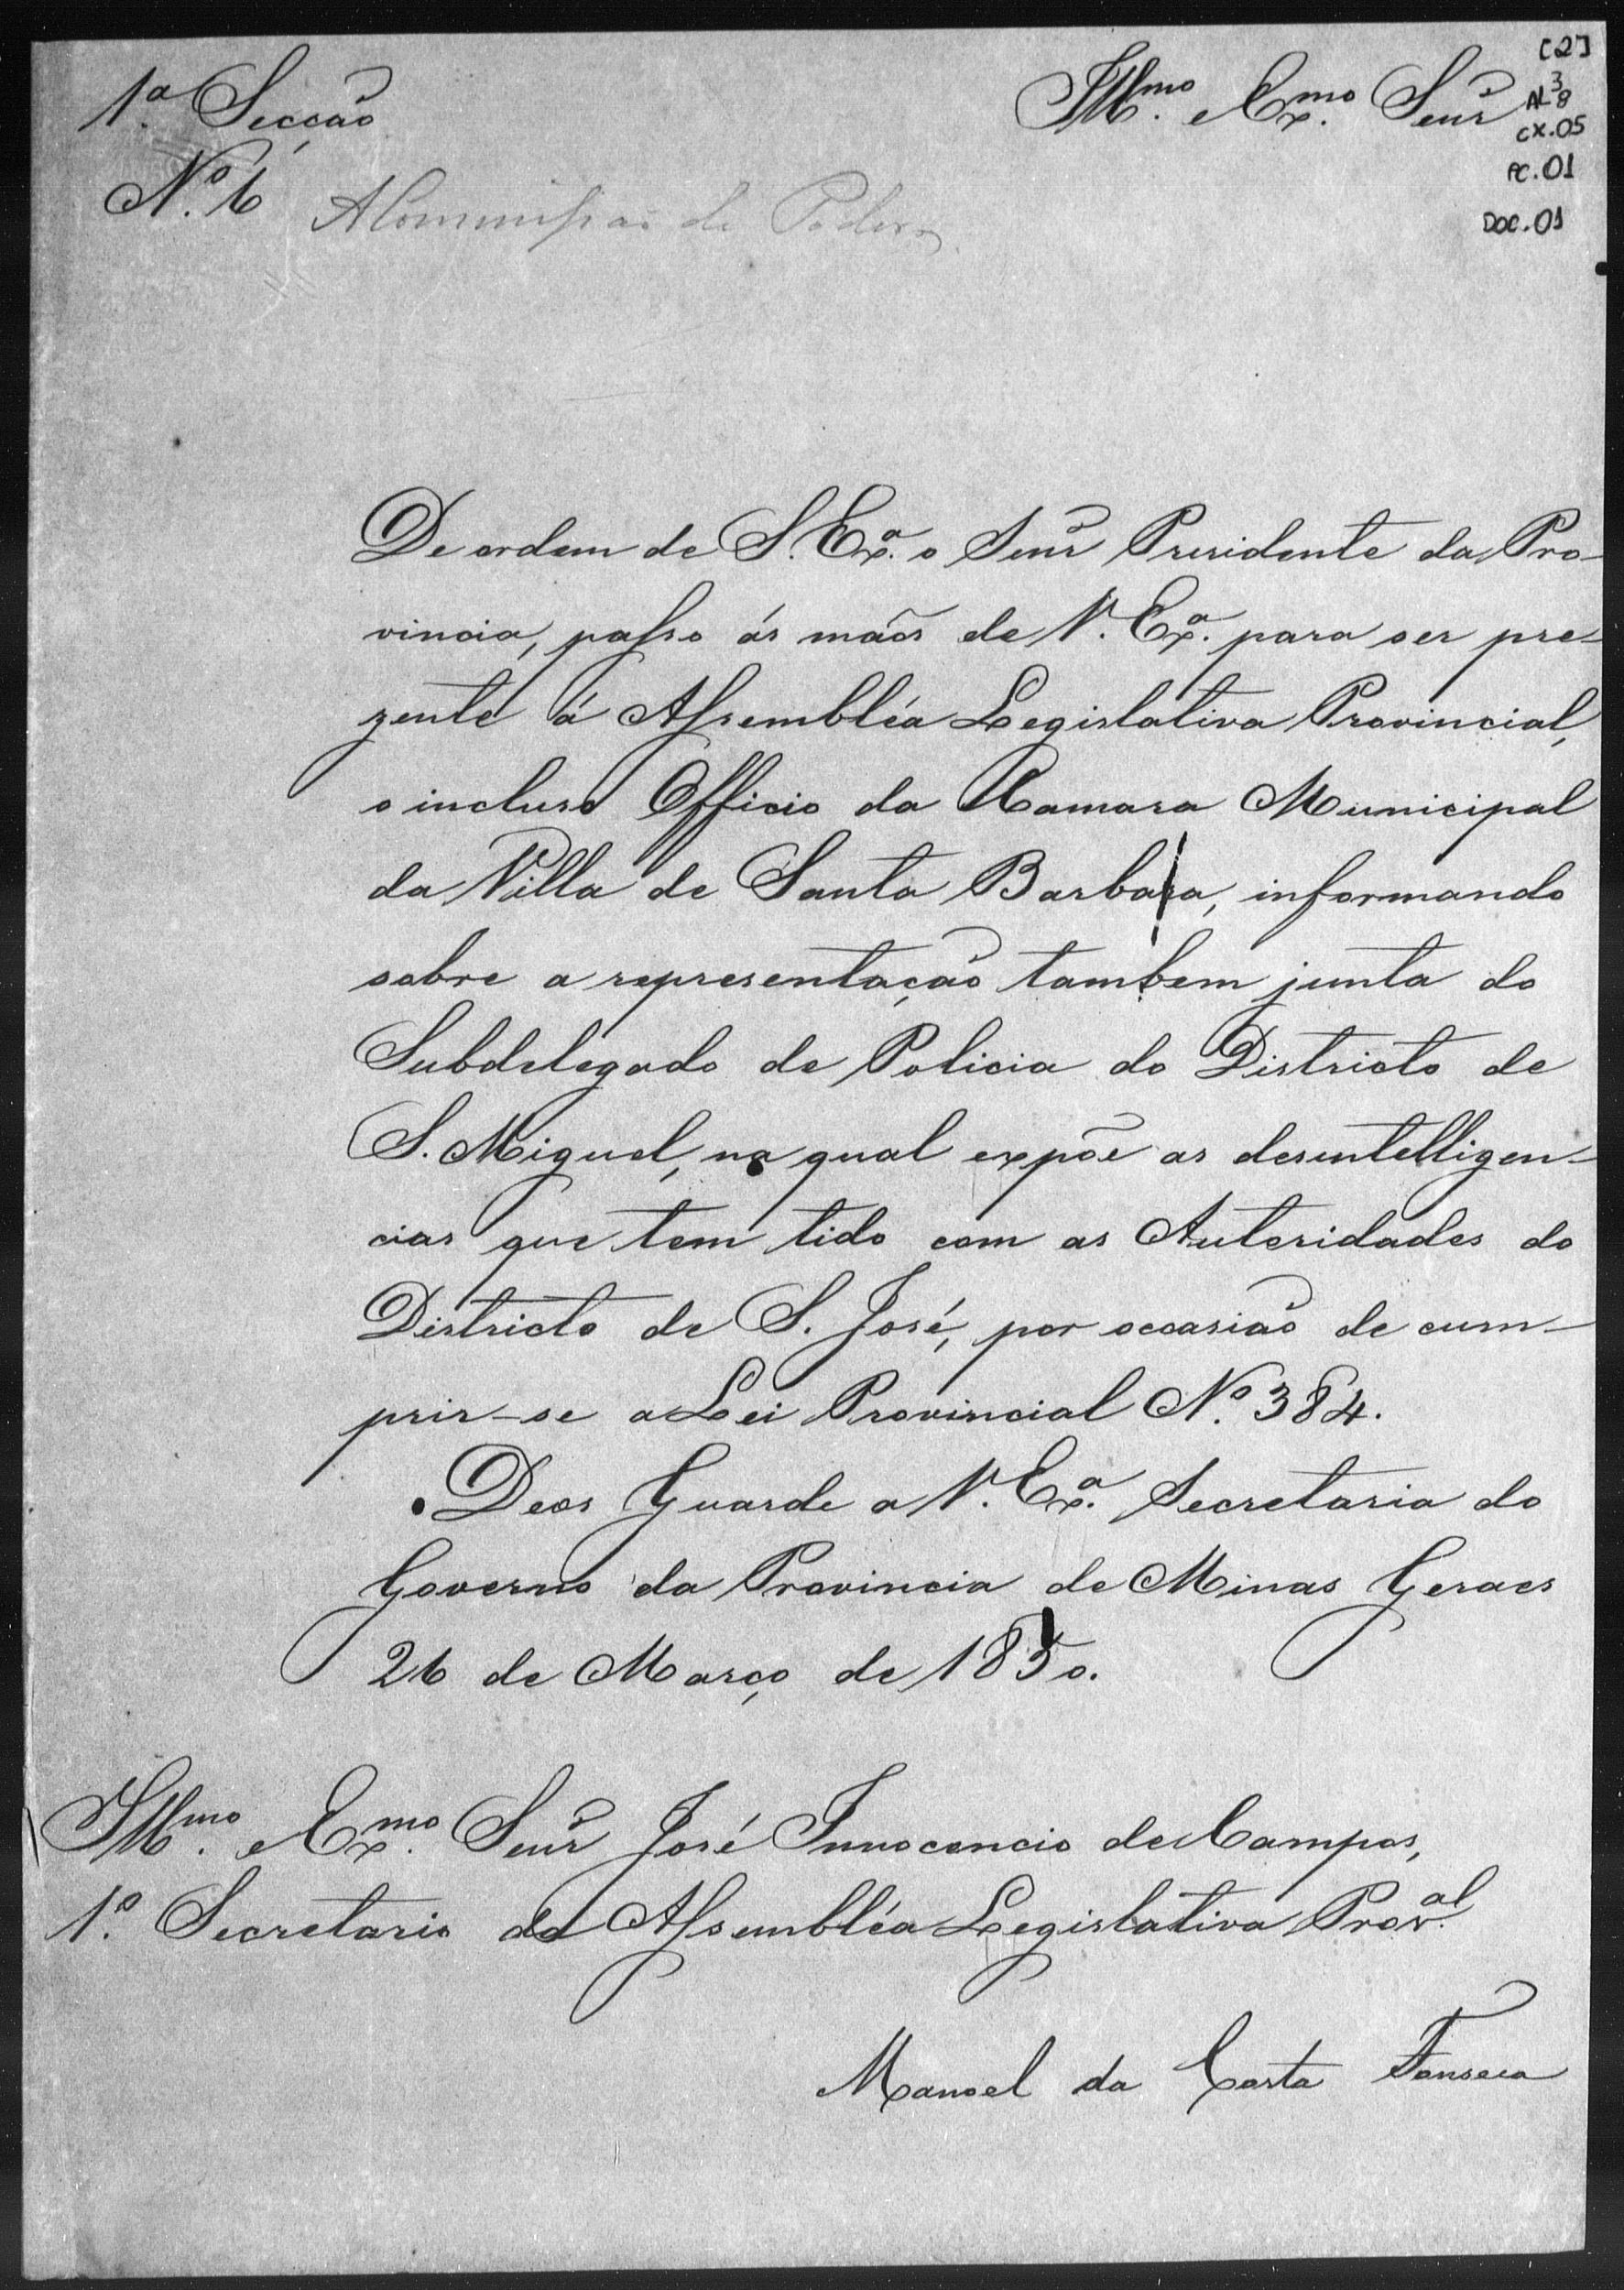 [2]
1ª Secção
Illmo. e Exmo. Senr
AL 3/8
cx.05
Nº. 6
PC.01
A Commissaõ de Poderes
DOC.01
De ordem de S. Exª. o Senr Presidente da Pro-
vincia, passo ás mãos de V. Exª. para ser pre-
zente á Assembléa Legislativa Provincial,
o incluso Officio da Camara Municipal
da Villa de Santa Barbara, informando
sobre a representação tambem junta do
Subdelegado de Policia do Districto de
S. Miguel, na qual expõe as desintelligen-
cias que tem tido com as Autoridades do
Districto de S. José, por occasião de cum-
prir-se a Lei Provincial Nº. 384.
Deos Guarde a V. Exª. Secretaria do
Governo da Provincia de Minas Geraes
26 de Março de 1850.
Illmo. e Exmo. Senr José Innocencio de Campos,
1º. Secretario da Assembléa Legislativa Proval.
Manoel da Costa Fonseca